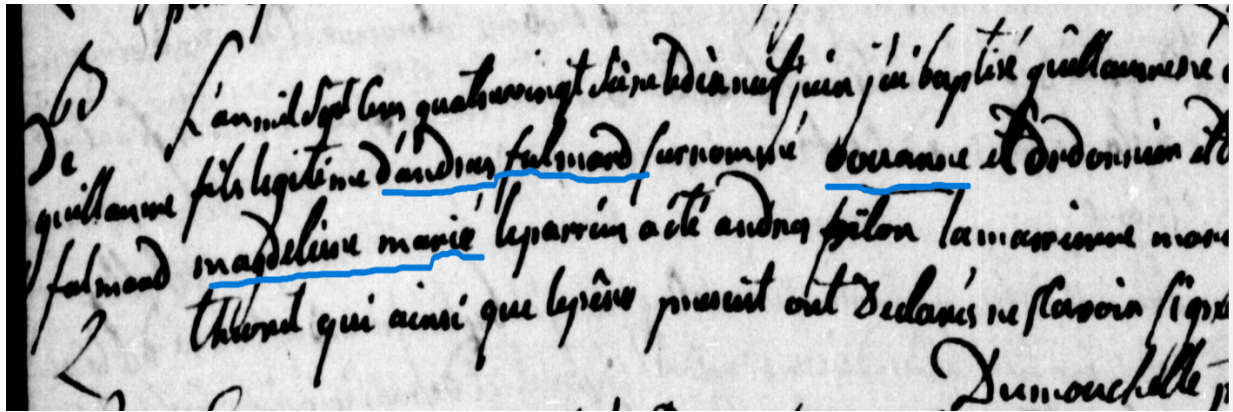 B
De
guillaume
fulmard
L'an mil sept cens quatrevingt seize le dix neuf juin j'ai baptisé guillaume né
fils legitime d'andres fulmard surnommé douanne et Cordonnier et
magdeleine marié le parrein a été andres pilon la marrienne marie
thuret qui ainsi que le pére present ont Declarés ne sçavoir signer
Dumouchelle